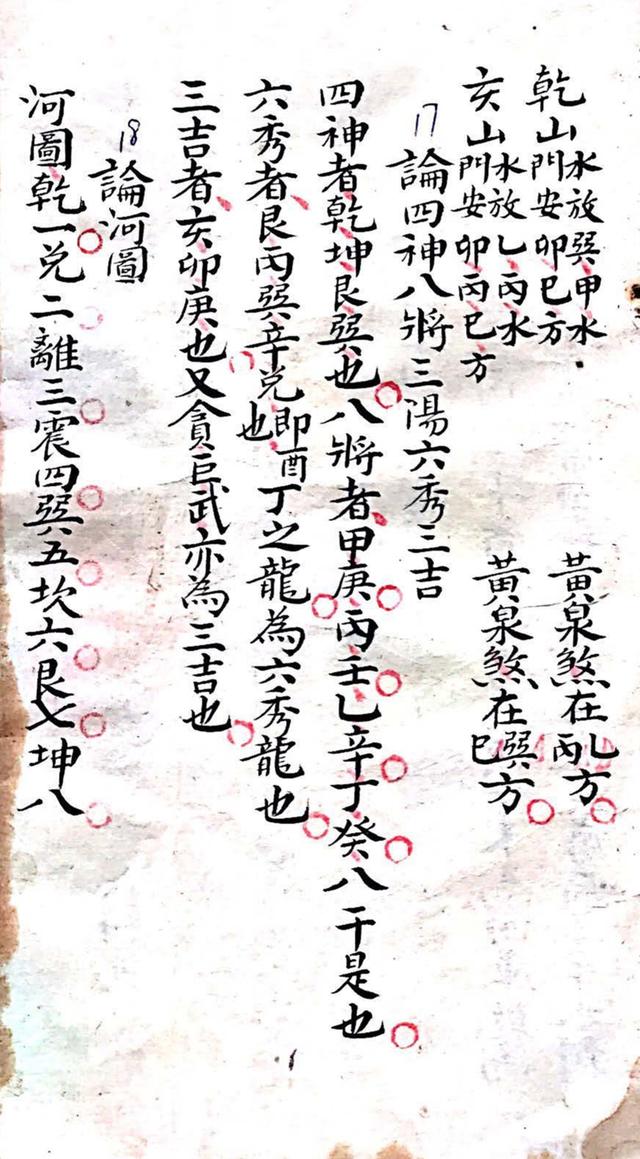 乾山水放巽甲水門安卯巳方 黃泉煞在乙丙方
亥山水放乙丙水門安卯丙巳方 黃泉煞在巽巳方
17 論四神八將三陽六秀三吉
四神者乾坤艮巽也八將者甲庚丙壬乙辛丁癸八干是也
六秀者艮丙巽辛兌即酉也丁之龍為六秀龍也
三吉者亥卯庚也又貪巨武亦為三吉也
18 論河圖
河圖乾一兌二離三震四巽五坎六艮七坤八